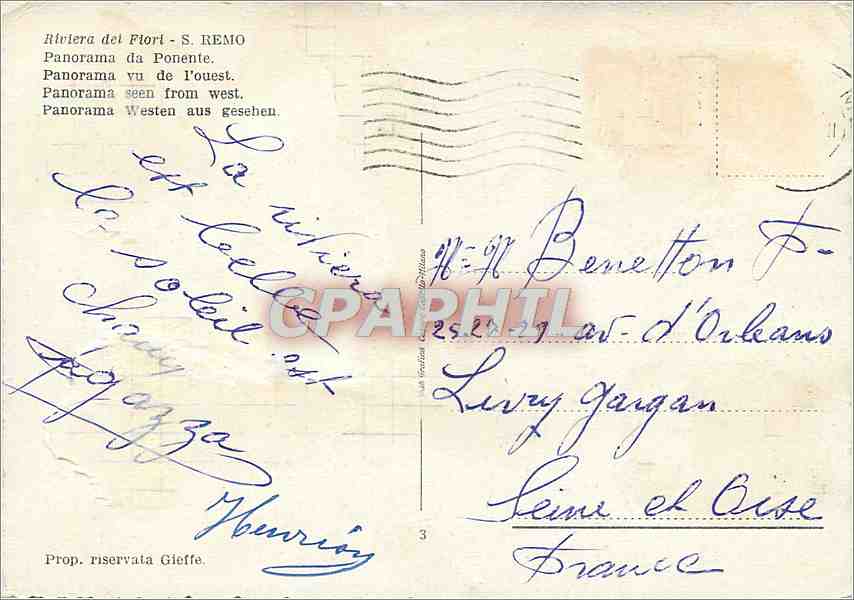 Riviera dei Fiori - S. REMO
Panorama da Ponente.
Panorama vu de l'ouest.
Panorama seen from west.
Panorama Westen aus gesehen.
La riviera
est belle
le soleil est
chaux
Henrion
Prop. riservata Gieffe.
CPAPHIL
3
Benetton F-
25.27-29 av- d'Orleans
Livry Gargan
Seine et Oise
France